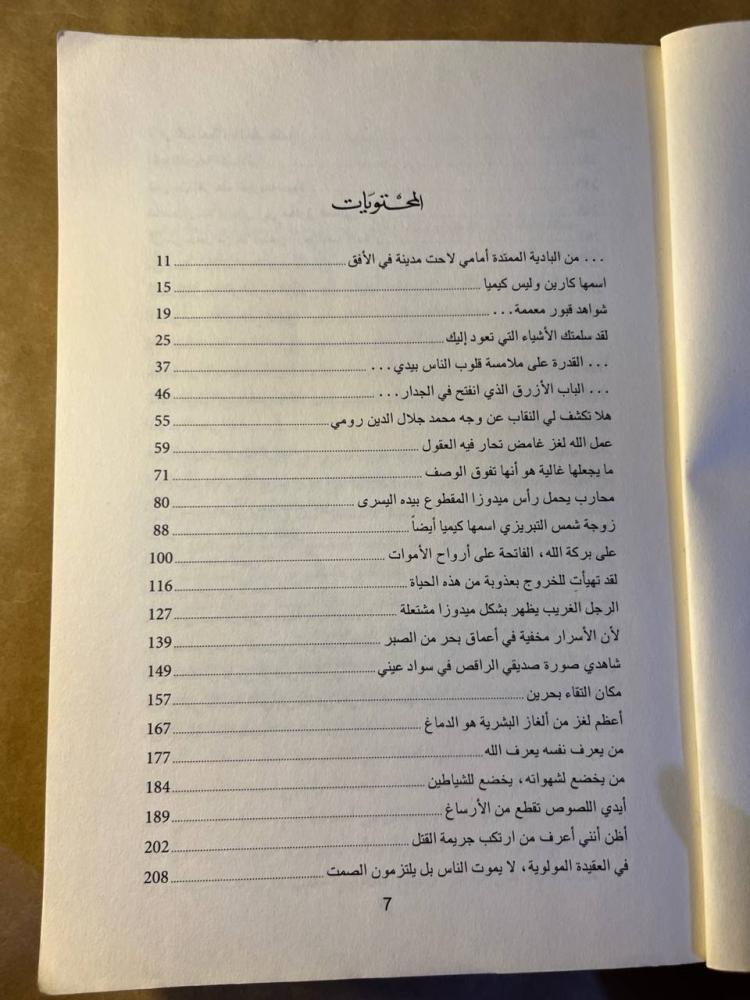 المحتويَات
... من البادية الممتدة أمامي لاحت مدينة في الأفق 11
اسمها كارين وليس كيميا 15
شواهد قبور معممة... 19
لقد سلمتك الأشياء التي تعود إليك 25
... القدرة على ملامسة قلوب الناس بيدي... 37
... الباب الأزرق الذي انفتح في الجدار... 46
هلا تكشف لي النقاب عن وجه محمد جلال الدين رومي 55
عمل الله لغز غامض تحار فيه العقول 59
ما يجعلها غالية هو أنها تفوق الوصف 71
محارب يحمل رأس ميدوزا المقطوع بيده اليسرى 80
زوجة شمس التبريزي اسمها كيميا أيضاً 88
على بركة الله، الفاتحة على أرواح الأموات 100
لقد تهيأتِ للخروج بعذوبة من هذه الحياة 116
الرجل الغريب يظهر بشكل ميدوزا مشتعلة 127
لأن الأسرار مخفية في أعماق بحر من الصبر 139
شاهدي صورة صديقي الراقص في سواد عيني 149
مكان التقاء بحرين 157
أعظم لغز من ألغاز البشرية هو الدماغ 167
من يعرف نفسه يعرف الله 177
من يخضع لشهواته، يخضع للشياطين 184
أيدي اللصوص تقطع من الأرساغ 189
أظن أنني أعرف من ارتكب جريمة القتل 202
في العقيدة المولوية، لا يموت الناس بل يلتزمون الصمت 208
7